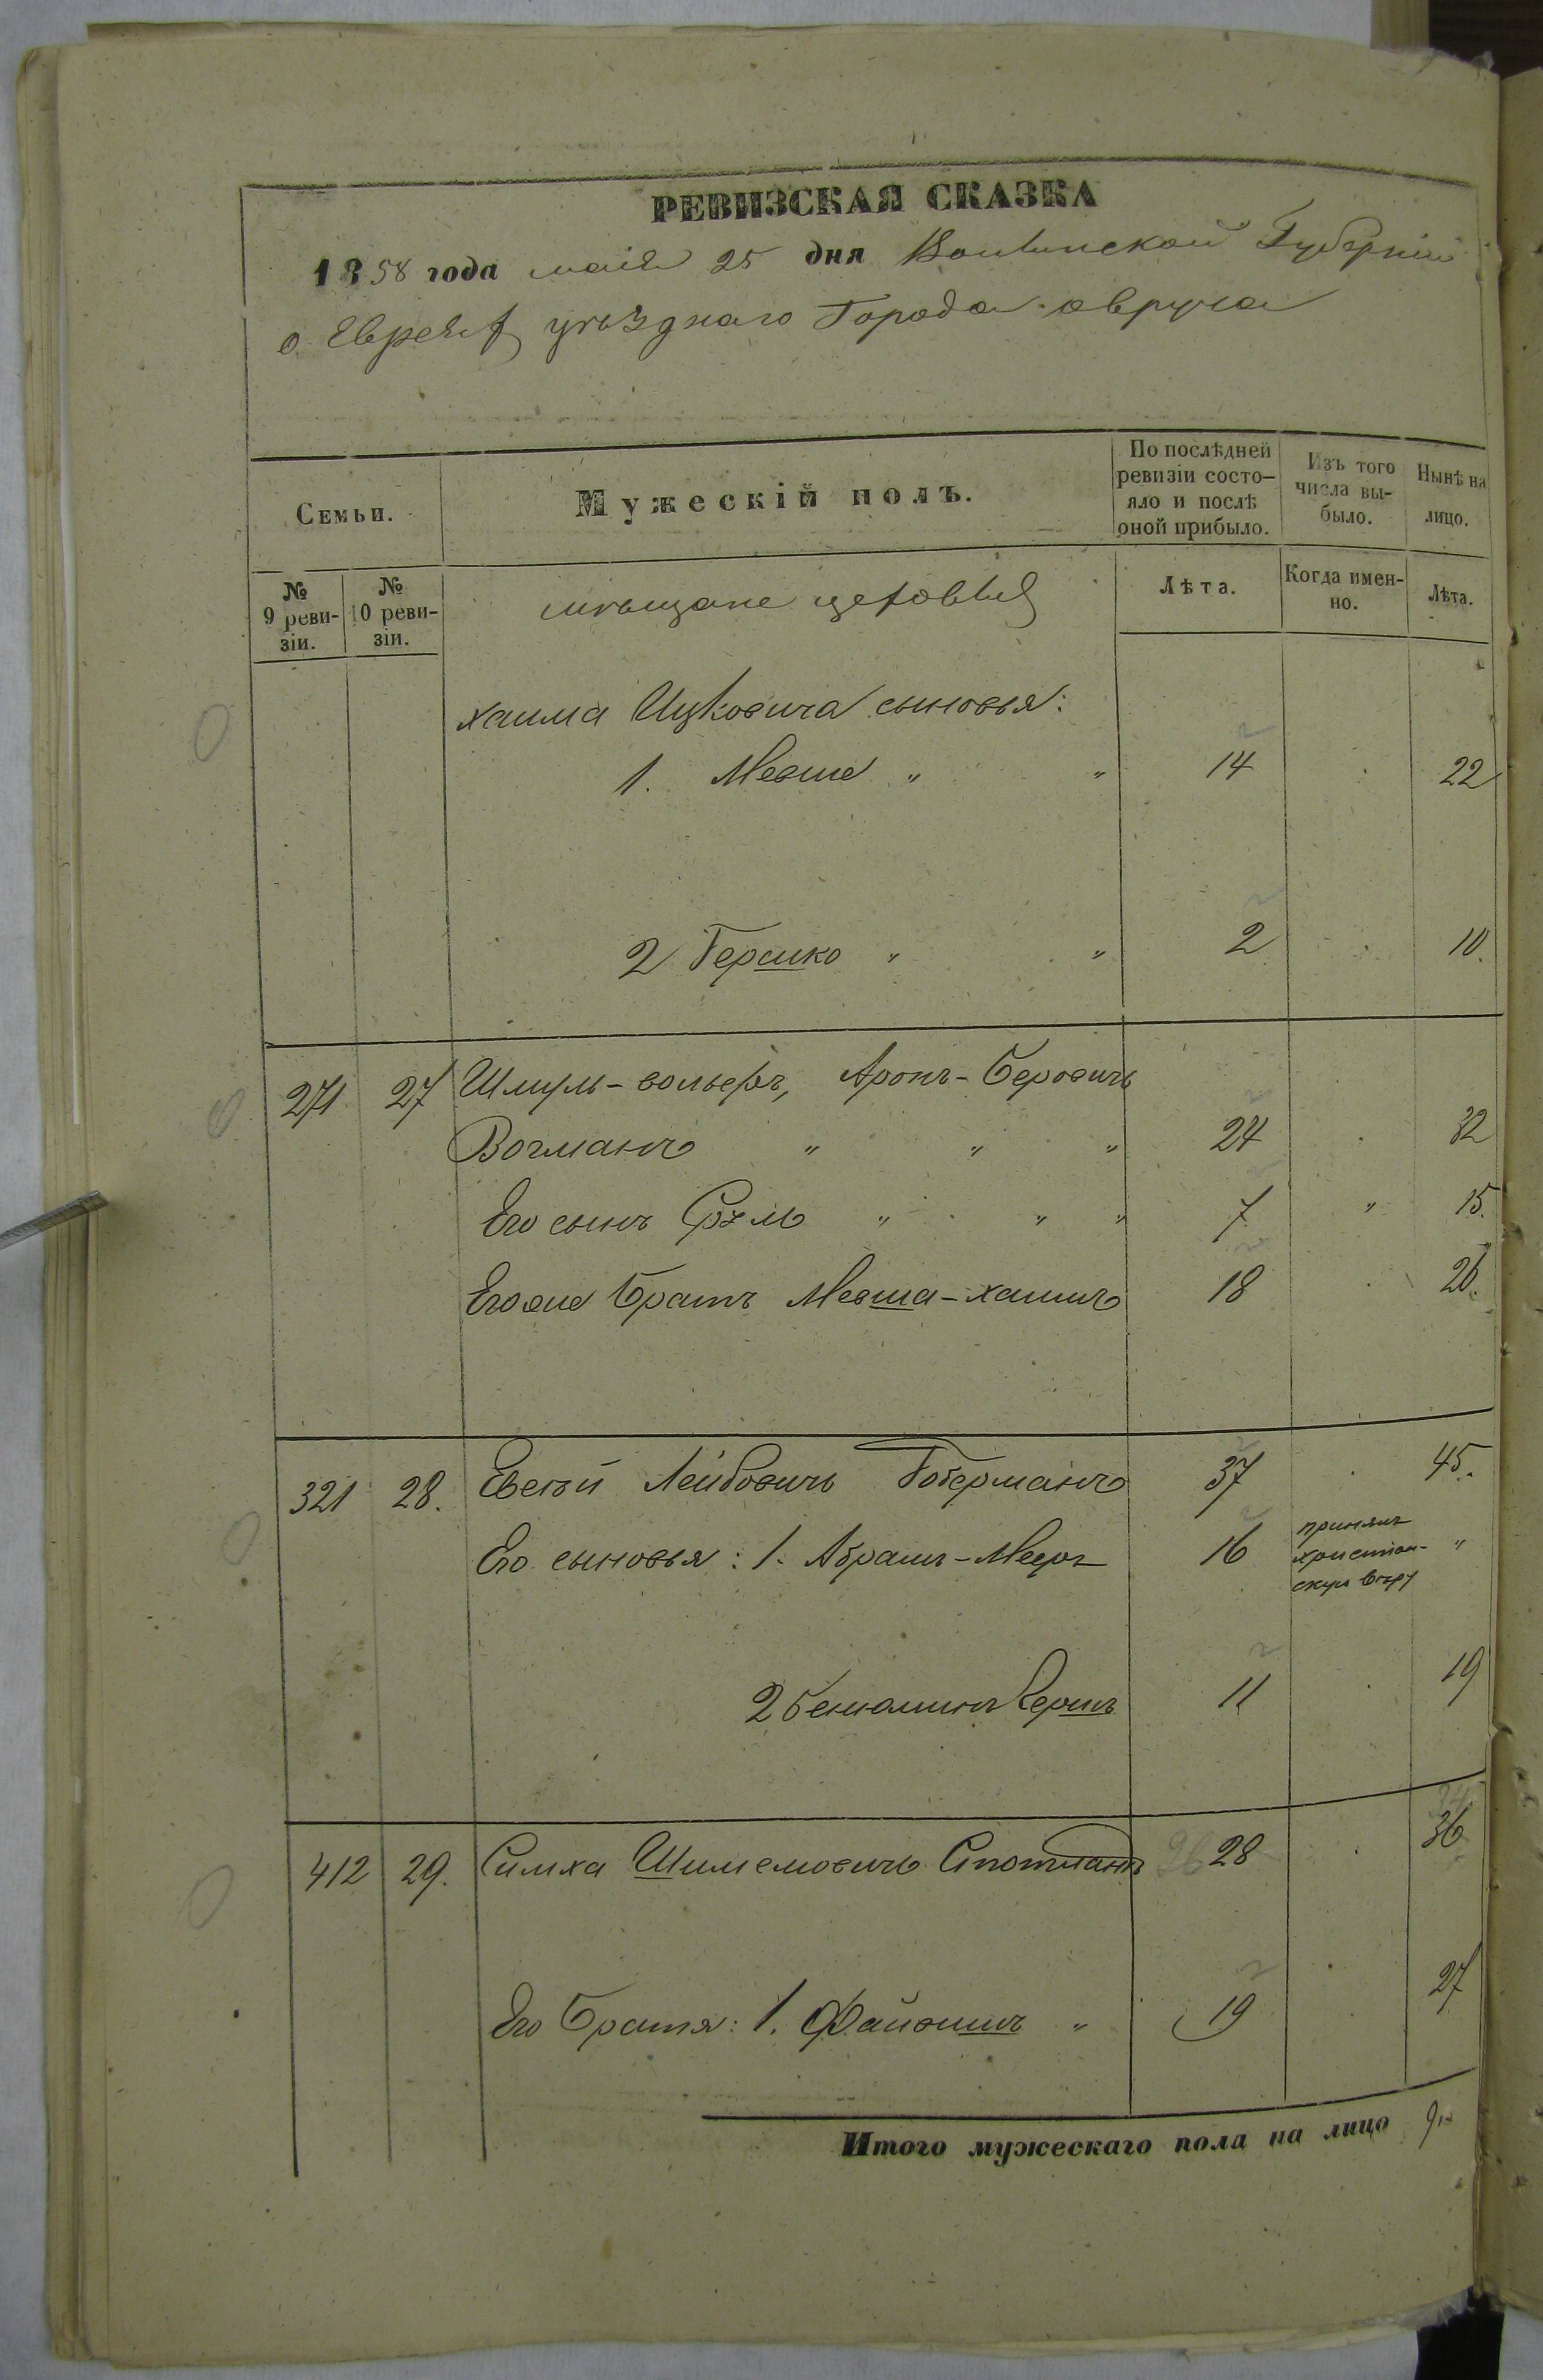 РЕВИЗСКАЯ СКАЗКА
1858 года маія 25 дня Волынской Губерніи
о Евреях уѣзднаго Города овруча
Семьи.
Мужескій полъ.
По послѣдней ревизіи состо-
яло и послѣ оной прибыло.
Изъ того числа вы-
было.
Нынѣ на лицо.
№ 9 реви-
зіи.
№ 10 реви-
зіи.
мѣщане цеховыя
Лѣта.
Когда имен-
но.
Лѣта.
хаима Ицковича сыновья:
1. Мовша " " 14 22
2 Гершко " " 2 10.
271 27 Шмуль-вольфъ, Аронъ-Беровичъ
Вогманъ " " " 24 32
Его сынъ " " " 7 " 15.
Егоже Братъ Мовша-хаимъ 18 26.
321 28. Евсей Лейбовичъ Гоберманъ 37 45.
Его сыновья: 1. Абрамъ-Мееръ 16 принялъ христіан-
скую вѣру "
2 Беніаминъ Гершъ 11 19
412 29. Симха Шимсмовичъ 28 36
Его Братья: 1. Файвишъ " 19 27
Итого мужескаго пола на лицо 9